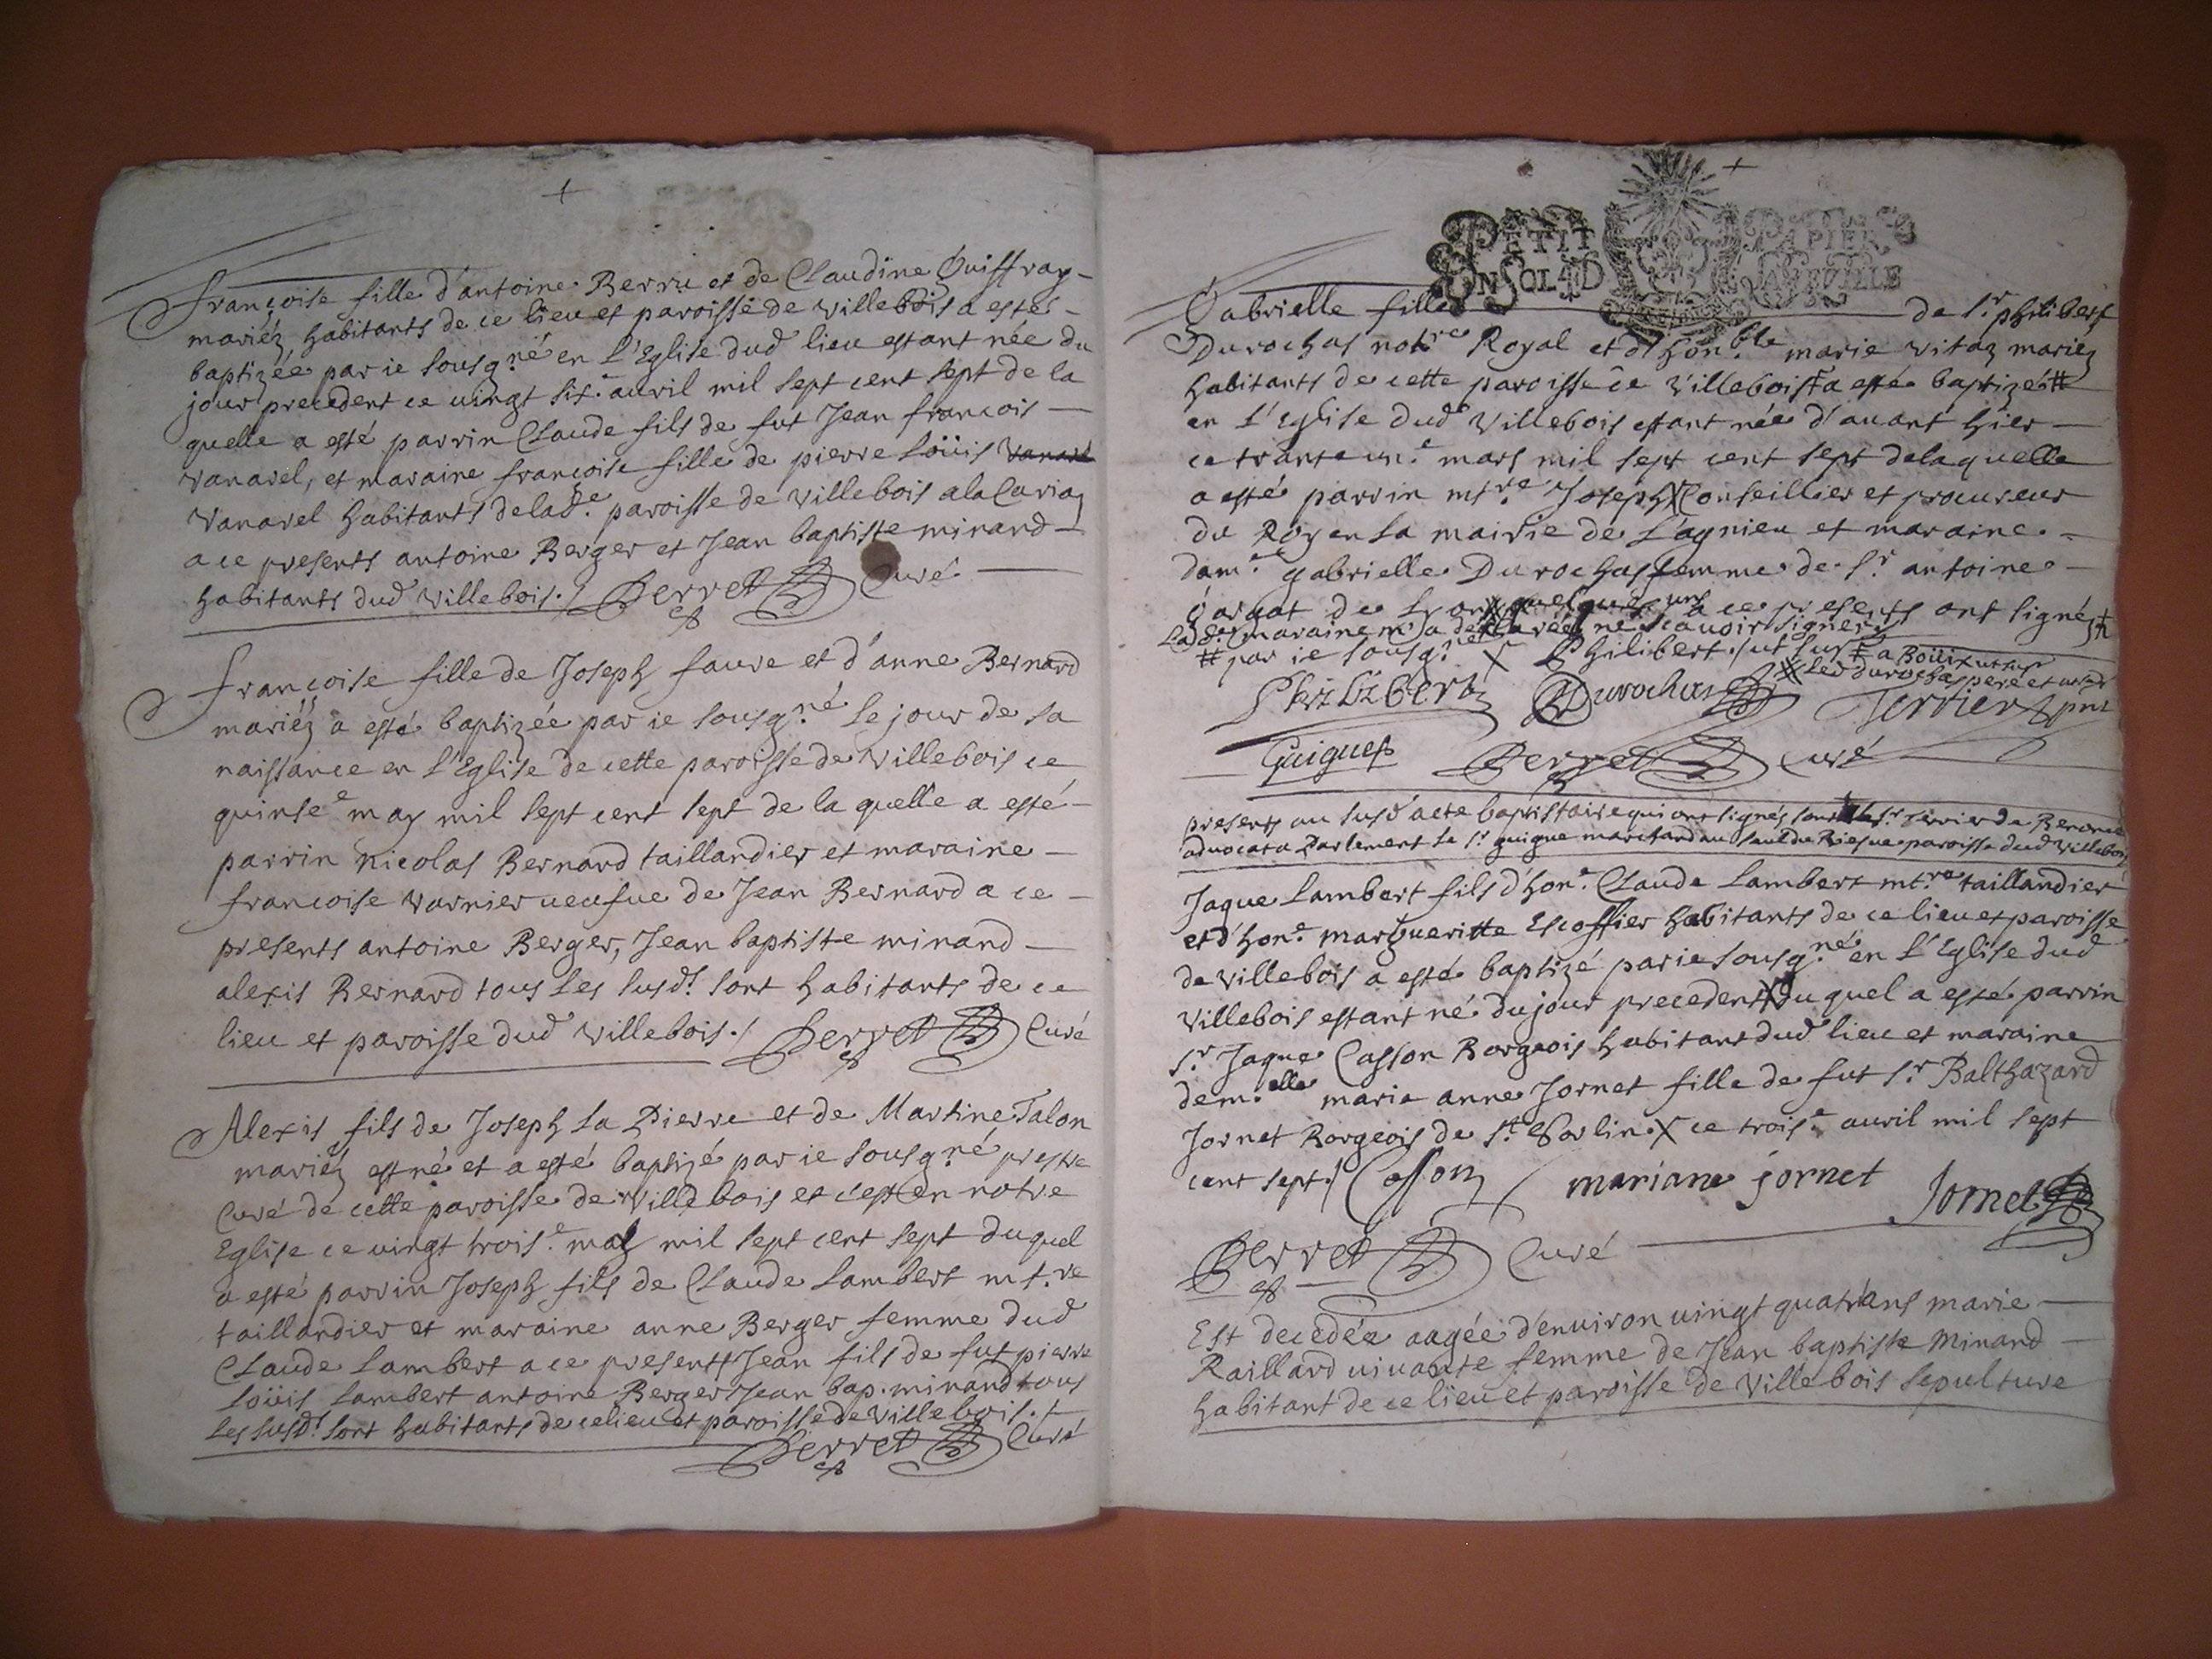 +
françoise fille d'antoine Berru et de Claudine Guiffray
mariéz habitants de ce lieu et paroisse de villebois a esté
baptizée par ie sousg.né en l'Eglise dud lieu estant née du
jour precedent ce uingt six.e auril mil sept cent sept de la
quelle a esté parrin Claude fils de fut Jean francois
vanarel, et maraine françoise fille de pierre Loüis
vanarel habitants delad.e paroisse de villebois
a ce presents antoine Berger et Jean baptiste minand
habitants dud villebois./ Perret Curé
françoise fille de Joseph faure et d'anne Bernard
mariéz a esté baptizée par ie sousg.né le jour de sa
naissance en l'Eglise de cette paroisse de villebois ce
quinse.e may mil sept cent sept de la quelle a esté
parrin nicolas Bernard taillandier et maraine
francoise varnier ueufue de Jean Bernard a ce
presents antoine Berger, Jean baptiste minand
alexis Bernard tous les susd.s sont habitants de ce
lieu et paroisse dud villebois./ Perret Curé
Alexis fils de Joseph La Pierre et de Martine Talon
mariéz est né et a esté baptizé par ie sousg.né prestre
Curé de cette paroisse de villebois et c'est en notre
Eglise ce uingt trois.e may mil sept cent sept duquel
a esté parrin Joseph fils de Claude Lambert mt.re
taillandier et maraine anne Berger femme dud
Claude Lambert a ce presents Jean fils de fut pierre
Loüis Lambert antoine Berger Jean bap. minand tous
les susd.s sont habitants de ce lieu et paroisse de villebois./.
Perret Curé
+
PETIT PAPIER
UN SOL 4 D LA FEVILLE
Gabrielle fille de s.r philibert
Durochas not.re Royal et d'hon.ble marie vitaz mariez
habitants de cette paroisse de villebois a esté baptizée #
en l'Eglise dud villebois estant née d'auant hier
ce trante un.e mars mil sept cent sept de laquelle
a esté parrin mt.re Joseph X Conseillier et procureur
du Roy en la mairie de Lagnieu et maraine
dam.e gabrielle Durochas femme de s.r antoine
de Lyon a ce presents ont signés
Lad.e maraine m'a declarée ne scauoir signer
# par ie sousg.né X Philibert ut sus a Boüix ut sup
led durochas pere et
Philibert Durochas Terrier pnt
Guigues Perret Curé
presents au susd acte baptistaire qui ont signés sont le s.r terrier de
aduocat a Parlement le s.r guigue marchand au paroisse dud villebois
Jaque Lambert fils d'hon.e Claude Lambert mt.re taillandier
et d'hon.e margueritte Escoffier habitants de ce lieu et paroisse
de villebois a esté baptizé par ie sousg.né en l'Eglise dud
villebois estant né du jour precedent X du quel a esté parrin
s.r Jaque Casson Borgeois habitant dud lieu et maraine
dem.elle marie anne Jornet fille de fut s.r Balthazard
Jornet Borgeois de s.t Sorlin X ce trois.e auril mil sept
cent sept./ Casson mariane jornet Jornet
Perret Curé
Est decedée aagée d'enuiron uingt quatr'ans marie
Raillard uiuante femme de Jean baptiste Minand
habitant de ce lieu et paroisse de villebois sepulture